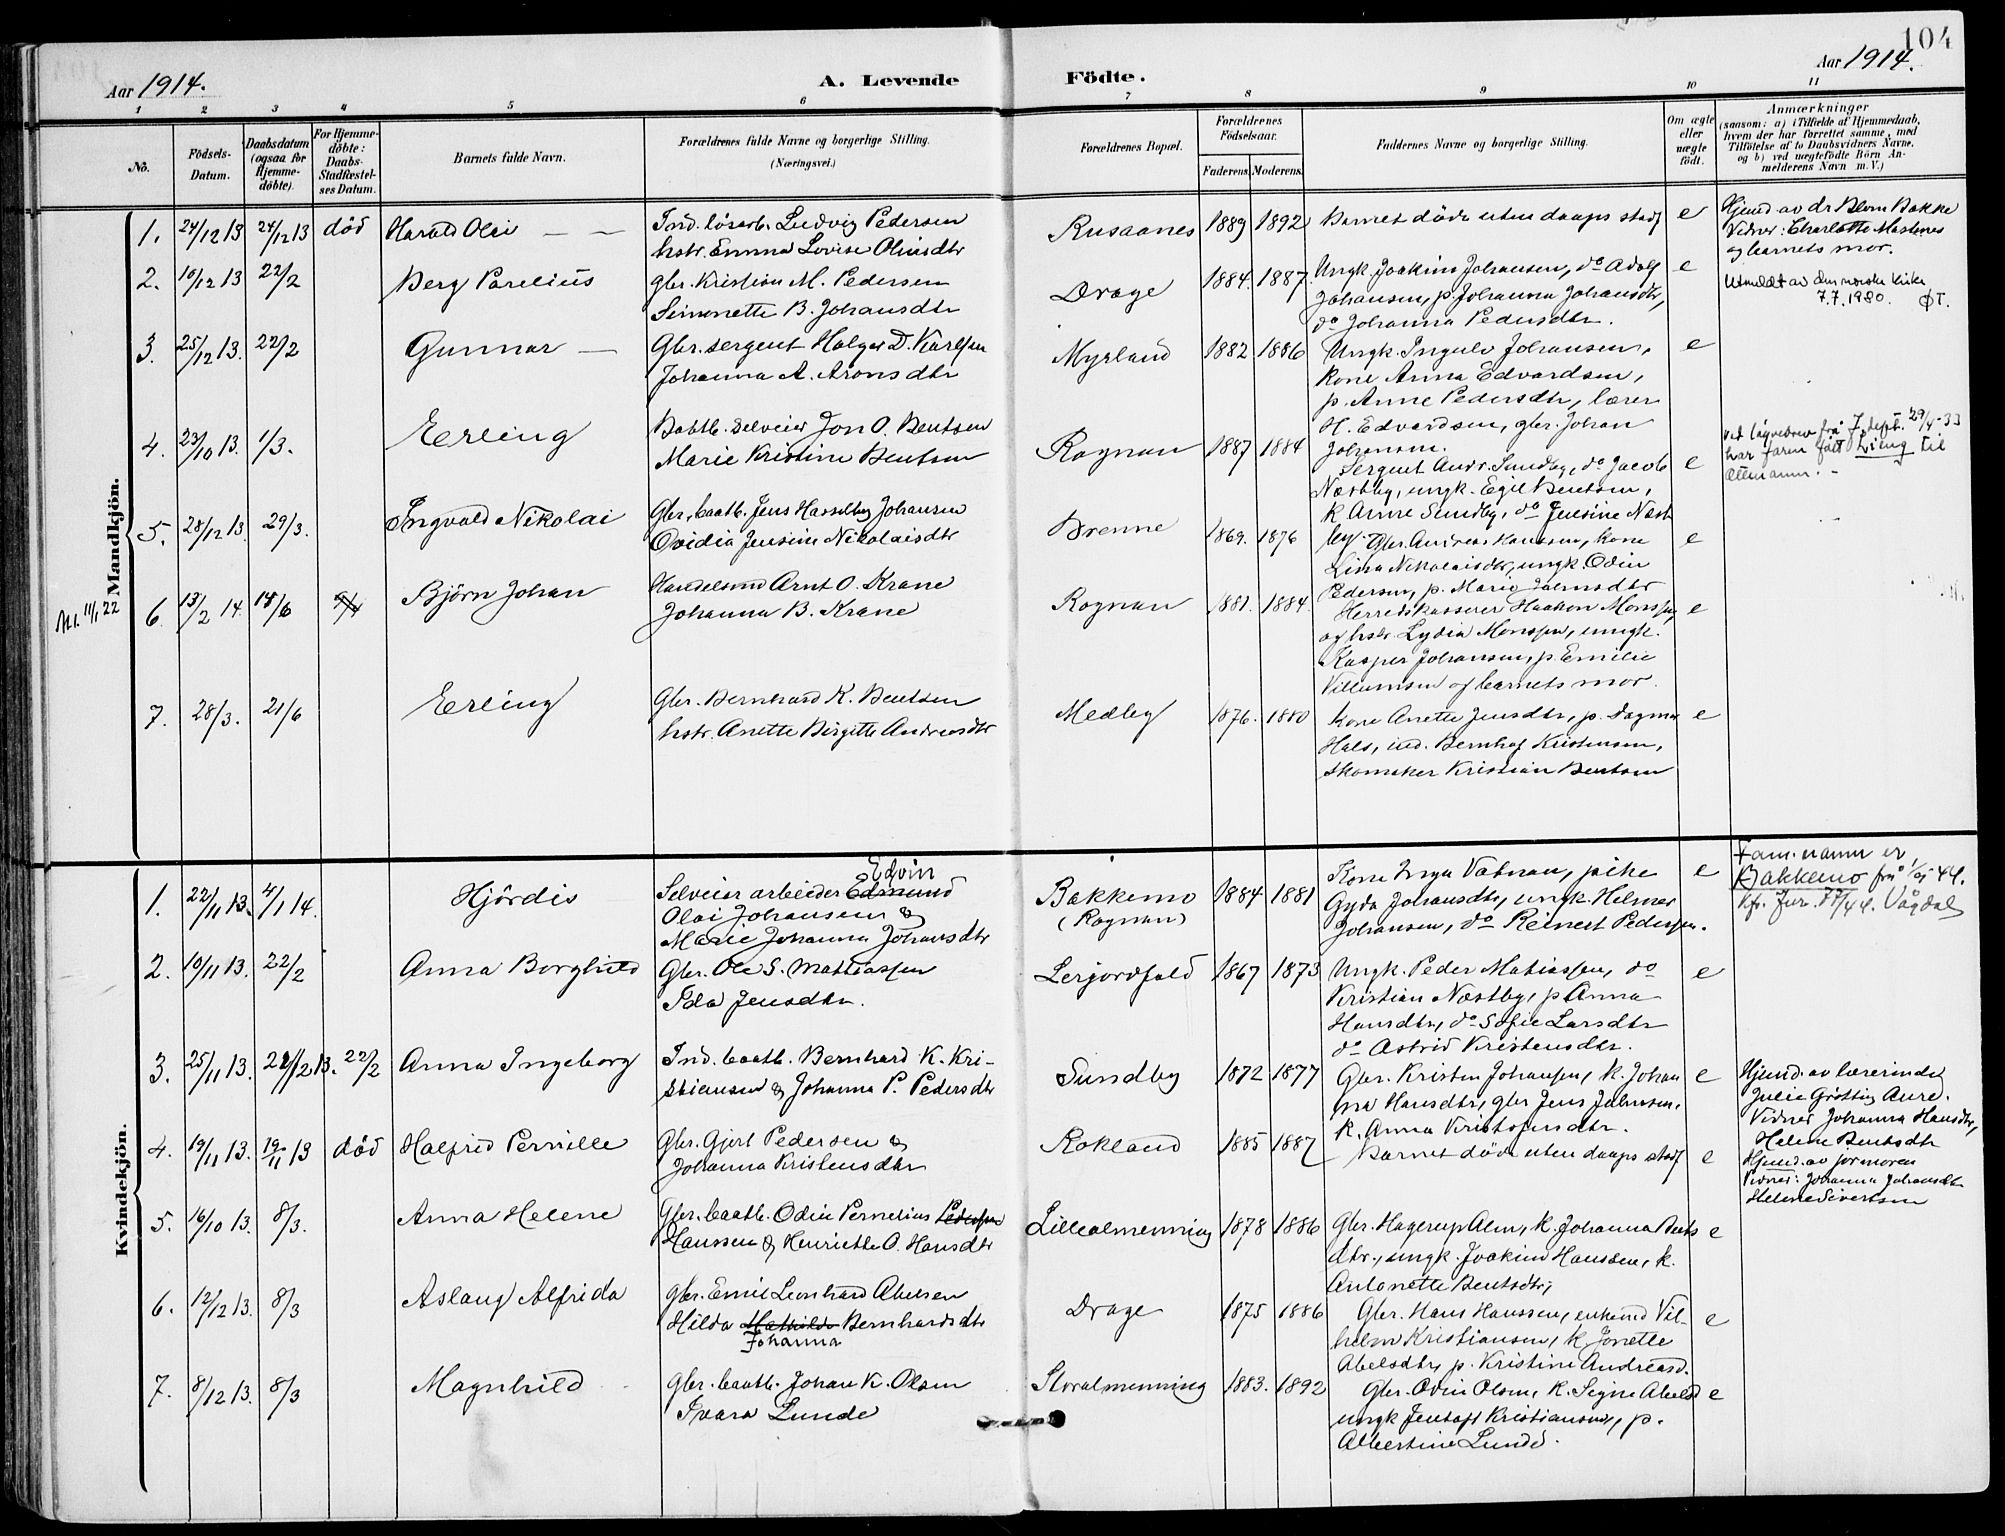 104
Aar 1914.
A. Levende
Födte.
Aar 1914.
1 2 3 4 5 6 7 8 9 10 11
No.
Födsels-Datum.
Daabsdatum (ogsaa for Hjemme-döbte).
For Hjemme-döbte: Daabs-Stadfæstel-ses Datum.
Barnets fulde Navn.
Forældrenes fulde Navne og borgerlige Stilling.
(Næringsvei.)
Forældrenes Bopæl.
Forældrenes Födselsaar.
Faderens. Moderens.
Faddernes Navne og borgerlige Stilling.
Om ægte eller uægte födt.
Anmærkninger
(saasom: a) i Tilfælde af Hjemmedaab,
hvem der har forrettet samme, med
Tilföielse af to Daabsvidners Navne,
og b) ved uægtefödte Börn An-
melderens Navn m. V.)
Mandkjön.
1. 24/12 13 24/12 13 död Harald Olai
Ind. lösarb. Ludvig Pedersen
hstr. Emma Lovise Olaisdtr
Rusaanes 1889 1892 Barnet döde uten daaps stadf e
Hjemd av dr Blom Bakke
Vidner: Charlotte Mastenes
og barnets mor.
2. 10/12 13 22/2 Berg Parelius
gbr. Kristian M. Pedersen
Simonette B. Johansdtr
Drage 1884. 1887.
Ungk. Joakim Johansen, do Adolf
Johansen, p. Johanna Johansdtr,
do Johanna Pedersdtr.
e
Utmeldt av den norske kirke
7.7.1980. ØT.
3. 25/12 13. 22/2 Gunnar
Gbr. sergent Holger D. Karlsen
Johanna A. Aronsdtr
Myrland 1882 1886
Ungk. Ingulv Johansen,
Kone Anna Edvardsen,
p. Anne Pedersdtr, lærer
H. Edvardsen, gbr. Johan
Johansen.
e
4. 23/10 13. 1/3. Erling
Baatb. selveier Jon O. Bentsen
Marie Kristine Bentsen
Rognan 1887 1884
Sergent Andr. Sundby, do Jacob
Næstby, ungk. Egil Bentsen,
k. Anne Sundby, do Jensine Næst
by.
e
ved løyvebrev frå J. dept. 29/4-33
har faren fått Lieng til
ættenamn.
5. 28/12 13. 29/3. Ingvald Nikolai
Gbr, baatb. Jens Hasselberg Johansen
Ovidia Jensine Nikolaisdtr
Brenne 1869. 1876
Gbr. Andreas Hanssen, kone
Lina Nikolaisdtr, ungk. Odin
Pedersen, p. Marie Jakobsdtr
e
11/1 22
6. 13/2 14. 14/6 Björn Johan
Handelsmd Arnt O. Krane
Johanna B. Krane
Rognan 1881. 1884.
Herredskasserer Haakon Monssen,
og hstr. Lydia Monssen, ungk.
Kasper Johansen, p. Emilie
Villumsen og barnets mor.
e
7. 28/3. 21/6 Erling
Gbr. Bernhard K. Bentsen
hstr. Anette Birgitte Andreasdtr
Medby 1876. 1880
Kone Anette Jensdtr, p. Dagmar
Hals, ind. Bernhof Kristensen,
skomaker Kristian Bentsen
e
Kvindekjön.
1. 22/11 13. 4/1 14. Hjördis
Edvin
Selveier arbeider Edmund
Olai Johansen &
Marie Johanna Johansdtr
Bakkemo
(Rognan)
1884 1881
Kone Inga Vatnan, pike
Gyda Johansdtr, ungk. Helmer
Johansen, do Reinert Pedersen.
e
Fam. namn er
Bakkemo frå 1/9 44.
2. 10/11 13. 22/2 Anna Borghild
Gbr. Ole S. Mathiassen
Ida Jensdtr.
Lerjordfald 1867 1873
Ungk. Peder Matiassen, do
Kristian Næstby, p Anna
Hansdtr, do Sofie Larsdtr
do Astrid Kristensdtr.
e
3. 25/11 13. 21/12 13. 22/2 Anna Ingeborg
Ind. baatb. Bernhard K. Kri-
stiansen & Johanna P. Pedersdtr
Sundby 1872 1877
Gbr. Kristen Johansen, k. Johan
na Hansdtr, gbr Jens Johnsen,
k. Anna Kristofersdtr.
e
Hjemd. av lærerinde
Julie Grötting Aure.
Vidner Johanna Hansdtr,
Helene Bentsdtr
4. 19/11 13. 19/11 13 död Halfrid Pernille
Gbr. Gjert Pedersen &
Johanna Kristensdtr
Rokland 1885 1887
Barnet döde uten daaps stadf e
Hjemd. av jormoren
Vidner: Johanna Johansdtr
Helene Sivertsen
5. 16/10 13. 8/3. Anna Helene
Gbr. baatb. Odin Pernelius Pedersen
Hanssen & Henriette O. Hansdtr
Lillealmenning 1878 1886
Gbr. Hagerup Alm, k. Johanna Bents
dtr., ungk. Joakim Hanssen, k.
Antonette Bentsdtr,
e
6. 12/12 13. 8/3 Aslaug Alfrida
gbr. Emil Leonhard Abelsen
Hilda Mathilde Bernhardsdtr
Johanna
Drage 1875 1886
Gbr. Hans Hanssen, enkemd Vil-
helm Kristiansen, k Jonette
Abelsdtr, p. Kristine Andreasd.
e
7. 8/12 13. 8/3 Magnhild
gbr. baatb. Johan K. Olsen
Ivara Lunde
Storalmenning 1883. 1892
Gbr. Odin Olsen, k. Signe Abelsd
ungk Jentoft Kristiansen, p.
Albertine Lunde.
e